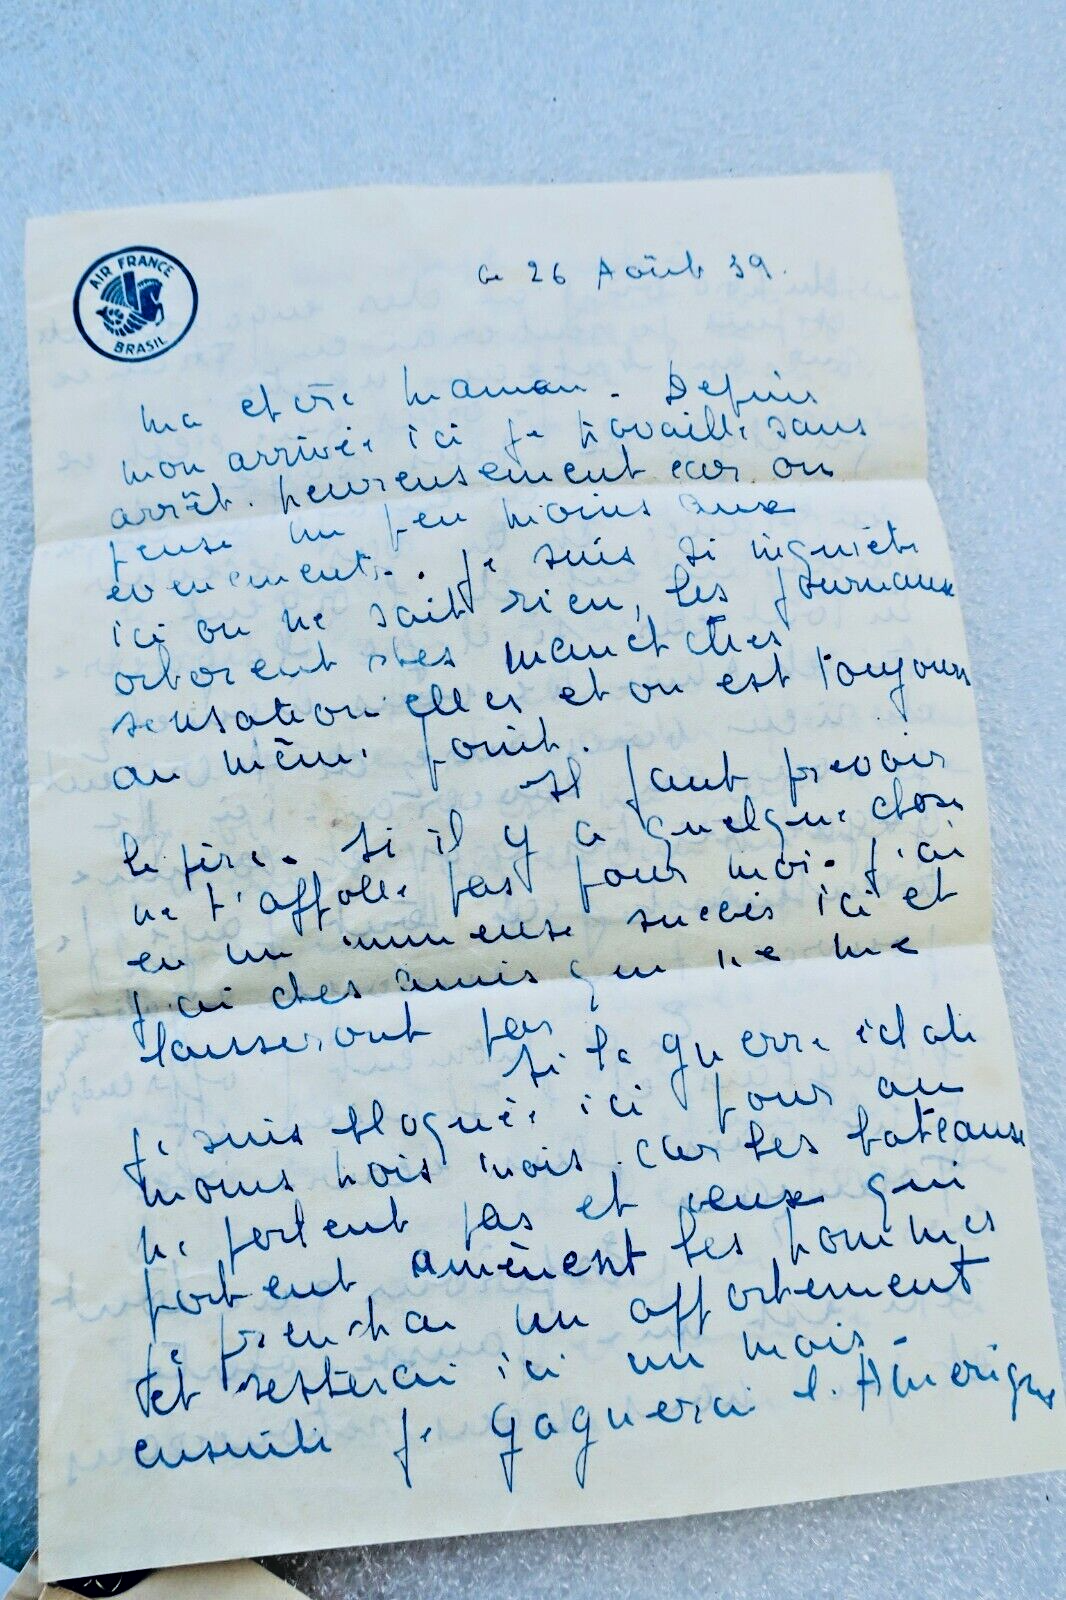 AIR FRANCE
BRASIL
ce 26 Août 39.
Ma chère Maman. Depuis
mon arrivée ici je travaille sans
arrêt. heureusement car on
pense un peu moins aux
evenements. je suis si inquiète
ici on ne sait rien, les journaux
arborent des manchettes
sensationnelles et on est toujours
au même point.
Il faut prevoir
le pire. Si il y a quelque chose
ne t'affolle pas pour moi. j'ai
eu un immense succès ici et
j'ai des amis qui ne me
laisseront pas
Si la guerre éclate
je suis bloquée ici pour au
moins trois mois. car les bateaux
ne partent pas et ceux qui
partent amènent les hommes
je prendrai un appartement
et resterai ici un mois.
ensuite je gagnerai l'Amérique